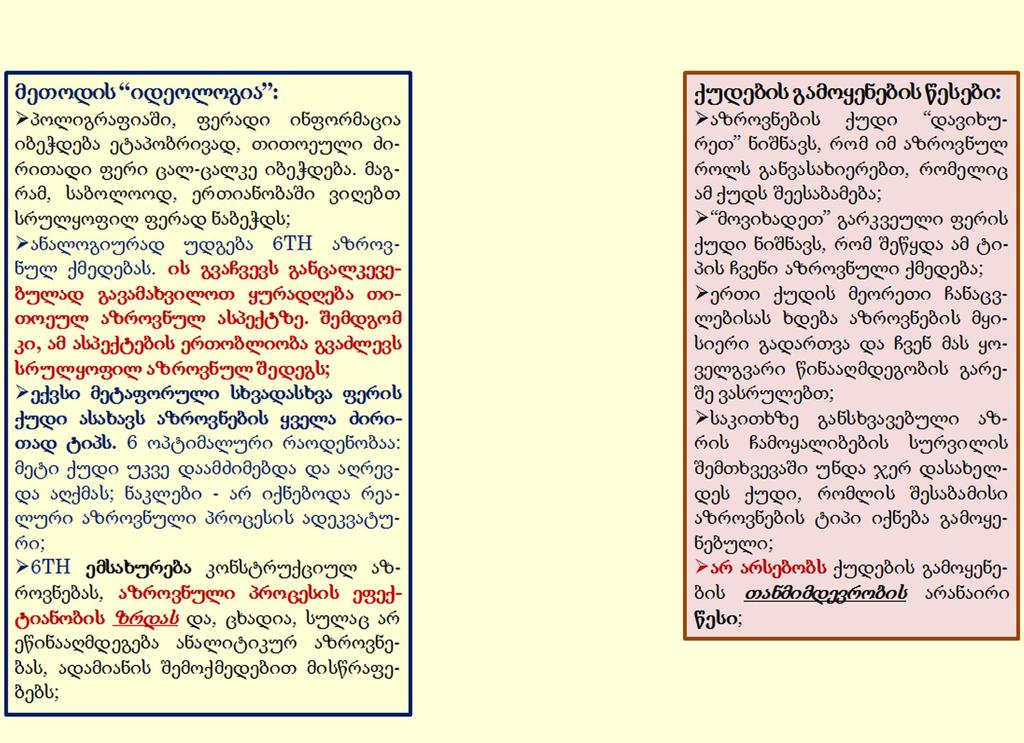 მეთოდის “იდეოლოგია”:
➢პოლიგრაფიაში, ფერადი ინფორმაცია
იბეჭდება ეტაპობრივად, თითოეული ძი-
რითადი ფერი ცალ-ცალკე იბეჭდება. მაგ-
რამ, საბოლოოდ, ერთიანობაში ვიღებთ
სრულყოფილ ფერად ნაბეჭდს;
➢ანალოგიურად უდგება 6TH აზროვ-
ნულ ქმედებას. ის გვაჩვევს განცალკევე-
ბულად გავამახვილოთ ყურადღება თი-
თოეულ აზროვნულ ასპექტზე. შემდგომ
კი, ამ ასპექტების ერთობლიობა გვაძლევს
სრულყოფილ აზროვნულ შედეგს;
➢ექვსი მეტაფორული სხვადასხვა ფერის
ქუდი ასახავს აზროვნების ყველა ძირი-
თად ტიპს. 6 ოპტიმალური რაოდენობაა:
მეტი ქუდი უკვე დაამძიმებდა და აღრევ-
და აღქმას; ნაკლები - არ იქნებოდა რეა-
ლური აზროვნული პროცესის ადეკვატუ-
რი;
➢6TH ემსახურება კონსტრუქციულ აზ-
როვნებას, აზროვნული პროცესის ეფექ-
ტიანობის ზრდას და, ცხადია, სულაც არ
ეწინააღმდეგება ანალიტიკურ აზროვნე-
ბას, ადამიანის შემოქმედებით მისწრაფე-
ბებს;
ქუდების გამოყენების წესები:
➢აზროვნების ქუდი “დავიხუ-
რეთ” ნიშნავს, რომ იმ აზროვნულ
როლს განვასახიერებთ, რომელიც
ამ ქუდს შეესაბამება;
➢“მოვიხადეთ” გარკვეული ფერის
ქუდი ნიშნავს, რომ შეწყდა ამ ტი-
პის ჩვენი აზროვნული ქმედება;
➢ერთი ქუდის მეორეთი ჩანაცვ-
ლებისას ხდება აზროვნების მყი-
სიერი გადართვა და ჩვენ მას ყო-
ველგვარი წინააღმდეგობის გარე-
შე ვასრულებთ;
➢საკითხზე განსხვავებული აზ-
რის ჩამოყალიბების სურვილის
შემთხვევაში უნდა ჯერ დასახელ-
დეს ქუდი, რომლის შესაბამისი
აზროვნების ტიპი იქნება გამოყე-
ნებული;
➢არ არსებობს ქუდების გამოყენე-
ბის თანმიმდევრობის არანაირი
წესი;